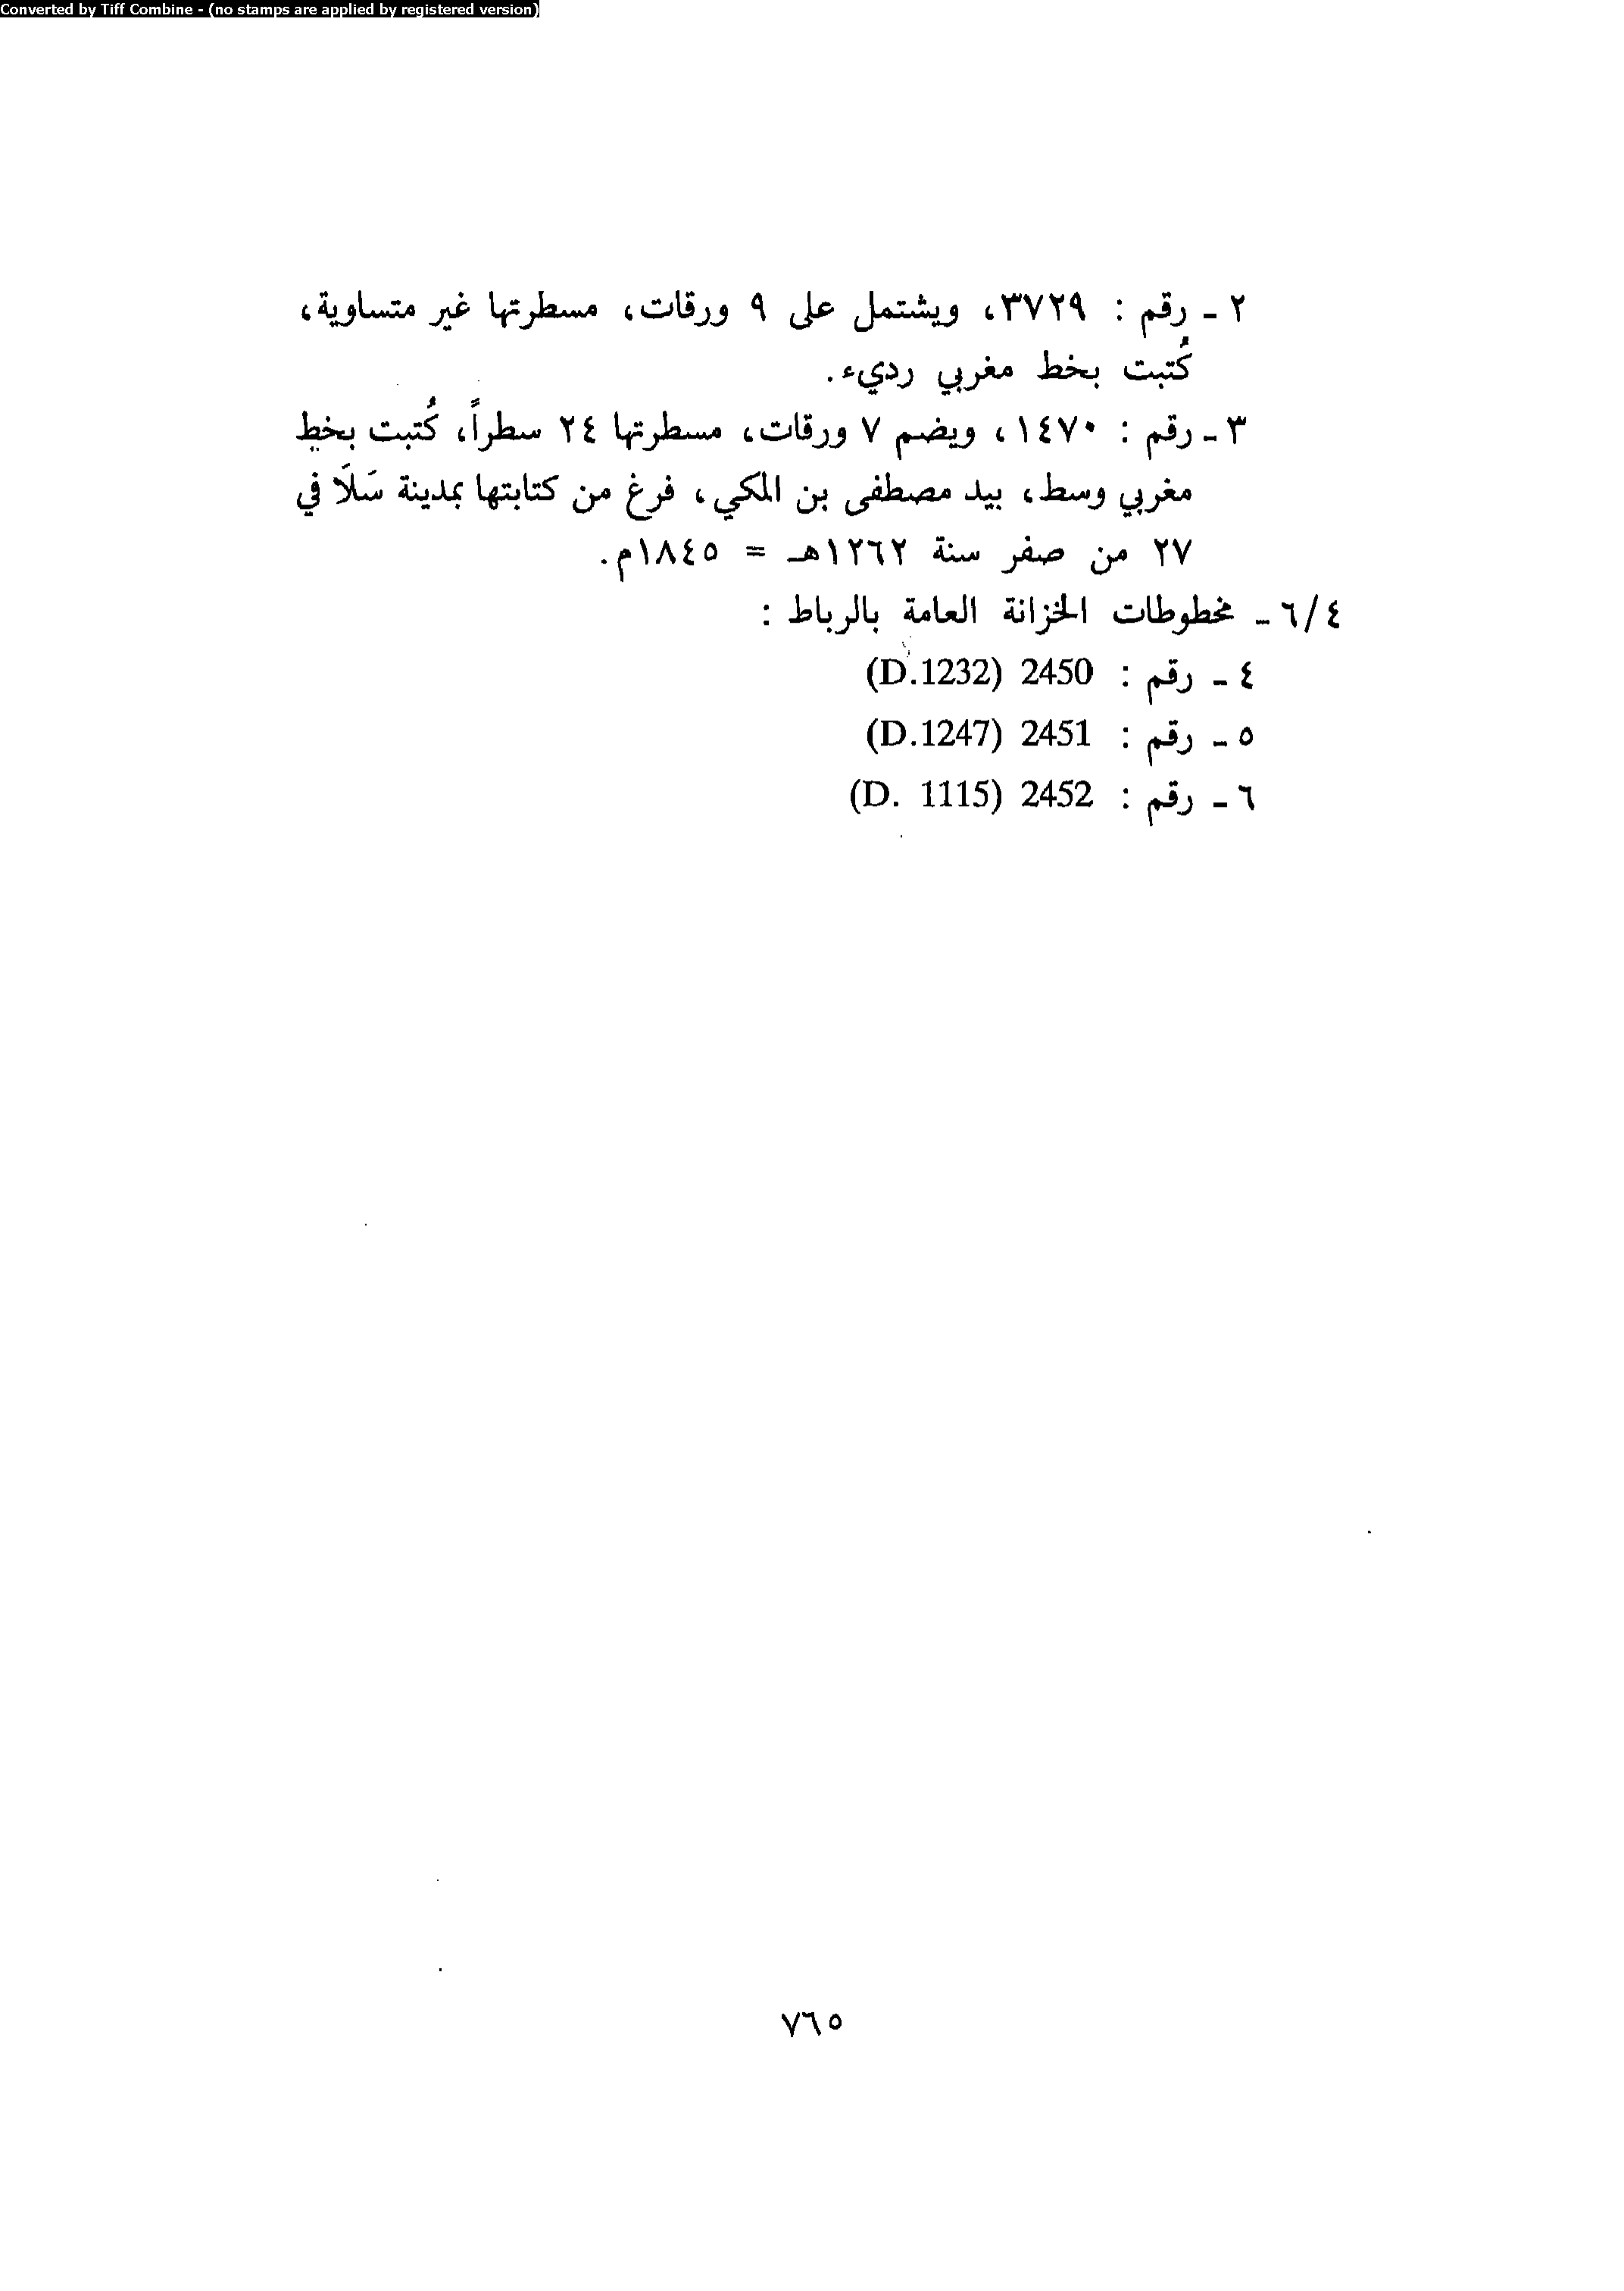 Converted by Tiff Combine - (no stamps are applied by registered version)
٢ - رقم : ٣٧٢٩، ويشتمل على ٩ ورقات، مسطرتها غير متساوية،
كُتبت بخط مغربي رديء.
٣ - رقم : ١٤٧٠، ويضم ٧ ورقات، مسطرتها ٢٤ سطراً، كُتبت بخط
مغربي وسط، بيد مصطفى بن المكي، فرغ من كتابتها بمدينة سَلَا في
٢٧ من صفر سنة ١٢٦٢هـ = ١٨٤٥م.
٦/٤ - مخطوطات الخزانة العامة بالرباط :
٤ - رقم : 2450 (D.1232)
٥ - رقم : 2451 (D.1247)
٦ - رقم : 2452 (D. 1115)
٧٦٥